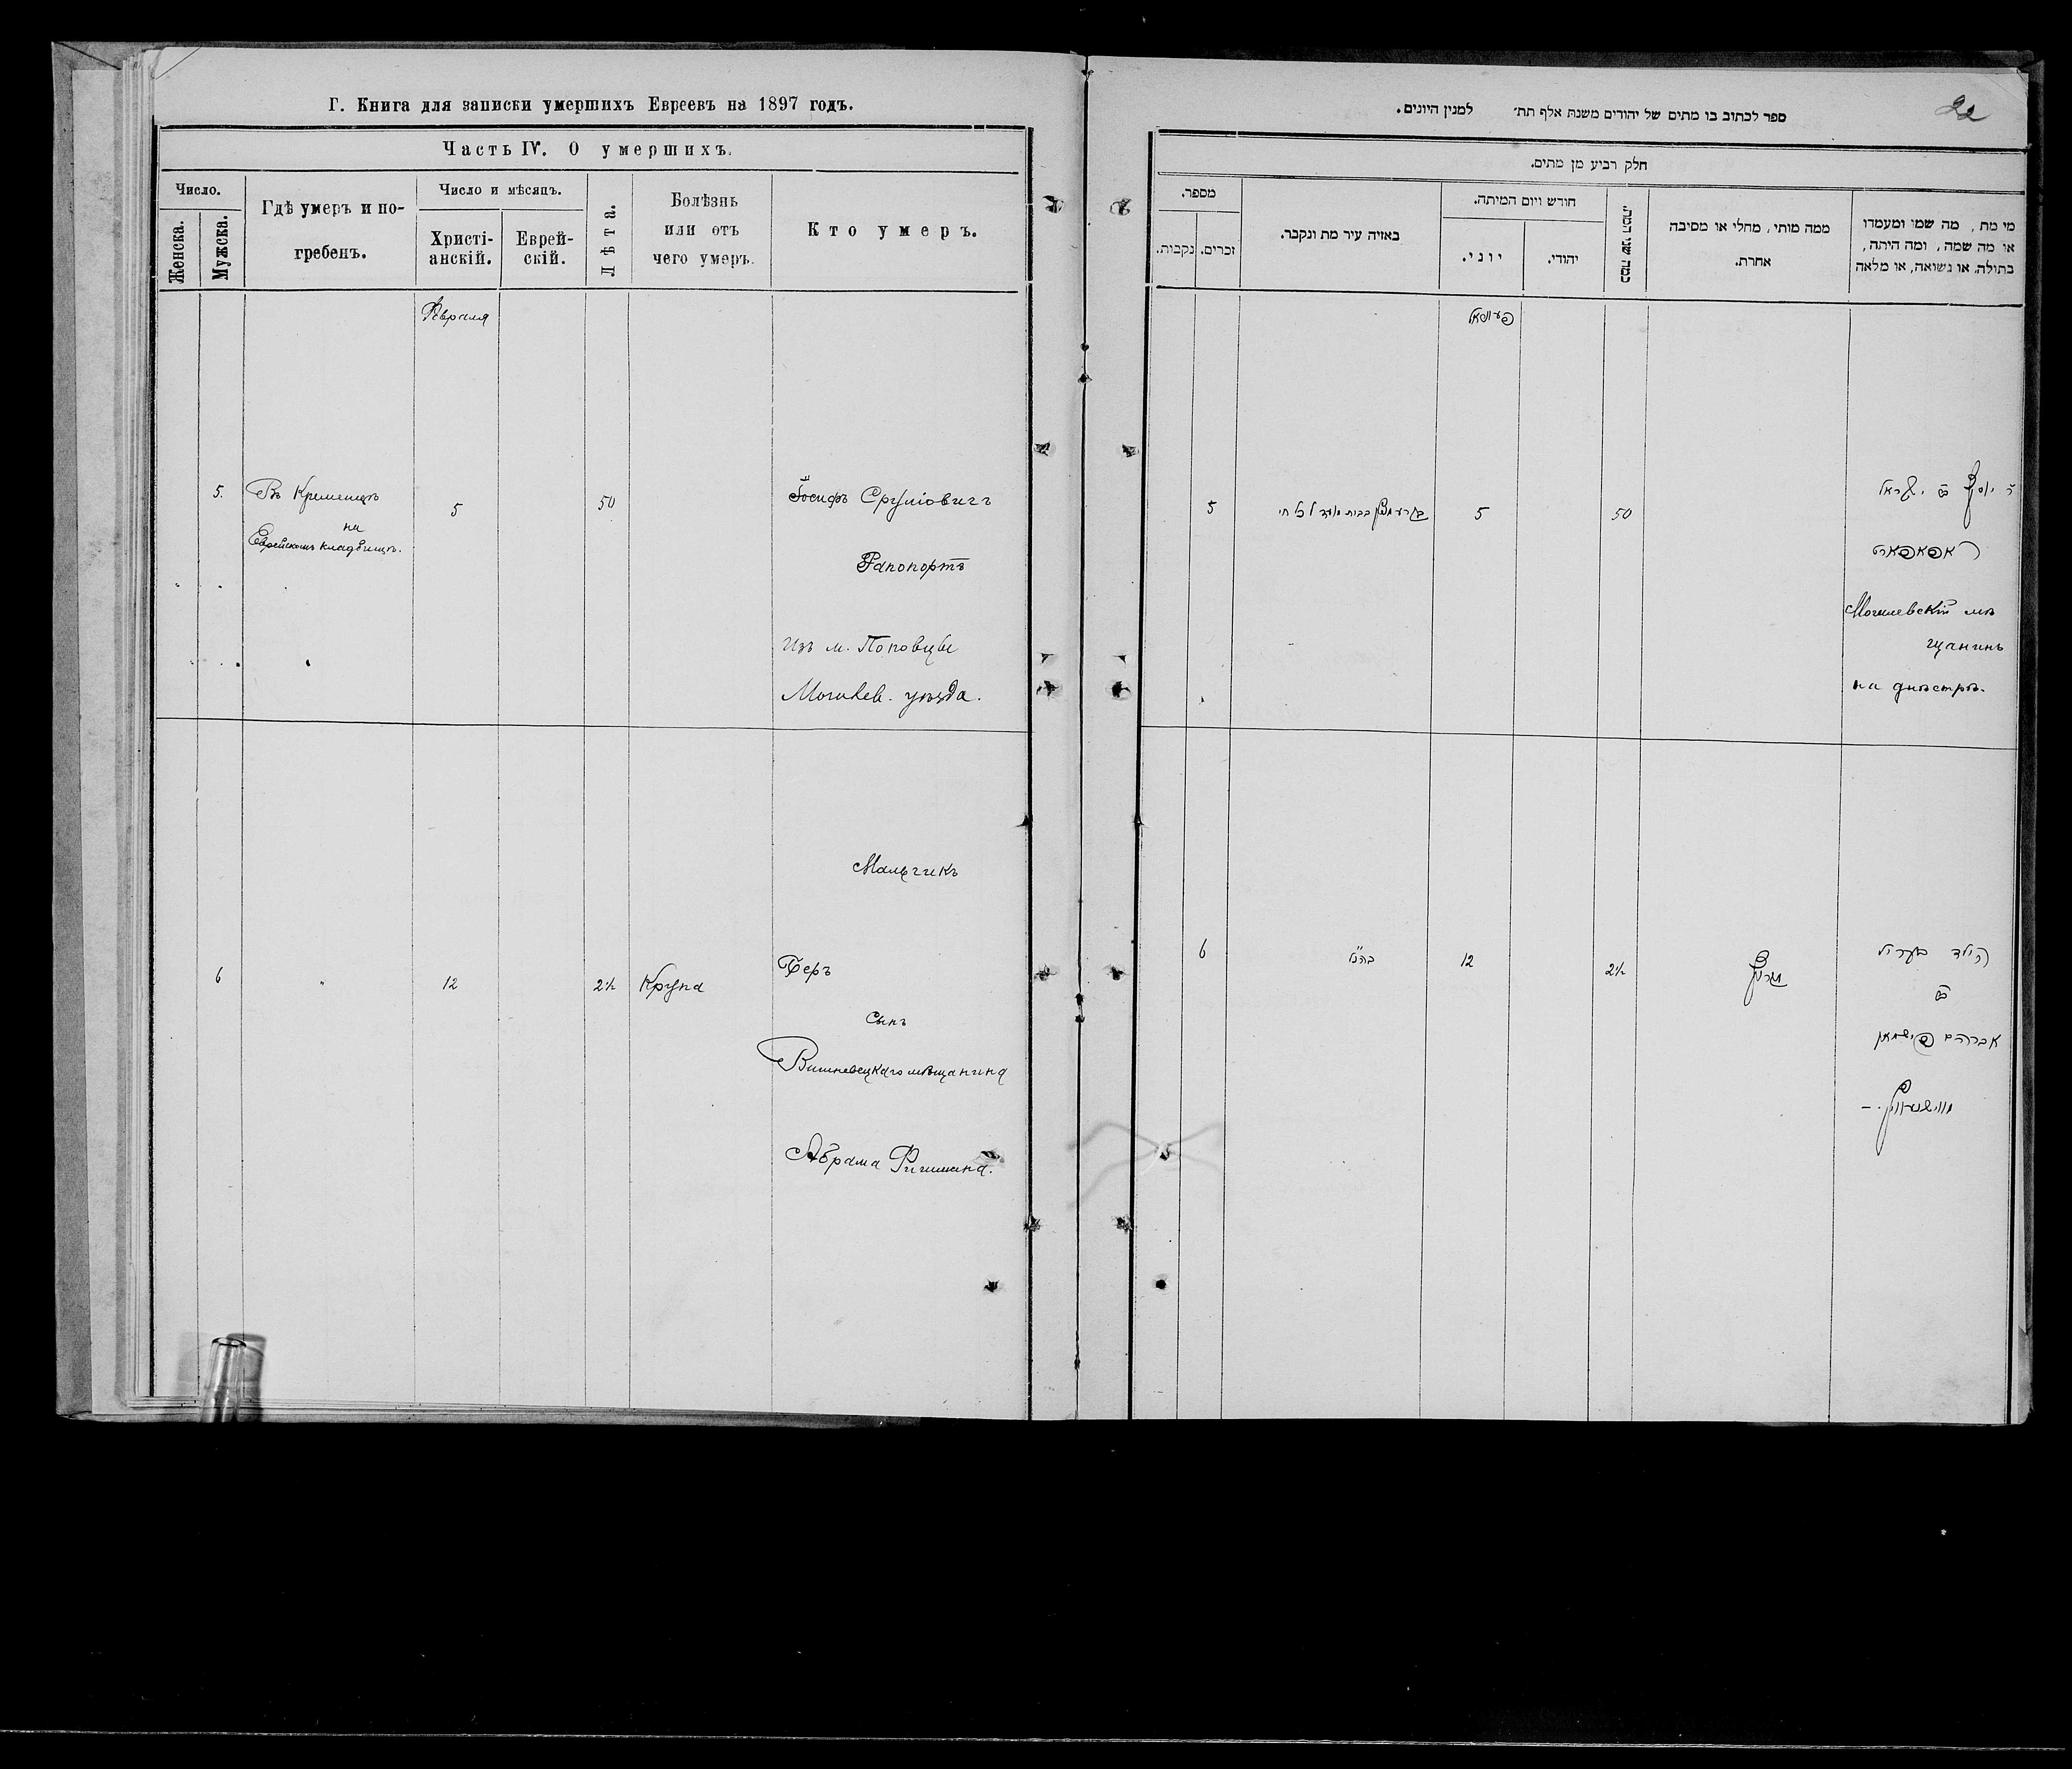 Г. Книга для записки умершихъ Евреевъ на 1897 годъ.
Часть IV. О умершихъ.
Число.
Женска.
Мужска.
Гдѣ умеръ и по-
гребенъ.
Число и мѣсяцъ.
Христі-
анскій.
Еврей-
скій.
Лѣта.
Болѣзнь
или отъ
чего умеръ.
Кто умеръ.
Февраля
5.
Въ Кременцѣ
на
Еврейскомъ кладбищѣ.
5
50
Іосифъ Сруліовичъ
Рапопортъ
Изъ м. Поповцы
Могилев. уѣзда.
6
"
12
2½
Крупа
Мальчикъ
Беръ
Сынъ
Вишневецкаго мѣщанина
Абрама Фишмана.
ספר לכתוב בו מתים של יהודים משנת אלף תת׳ למנין היונים.
חלק רביע מן מתים.
מספר.
נקבות.
זכרים.
באיזה עיר מת ונקבר.
חודש ויום המיתה.
יוני.
יהודי.
כמה שני המת.
ממה מותי, מחלי או מסיבה
אחרת.
מי מת, מה שמו ומעמדו
או מה שמה, ומה היתה,
בתולה, או נשואה, או מלאה
5
5
50
ר יוסף ב״ר ישראל
ראפאפארט
Могилевскій мѣ
щанинъ
на Днѣстрѣ.
6
12
2½
הילד בעריל
ב״ר
אברהם פישמאן